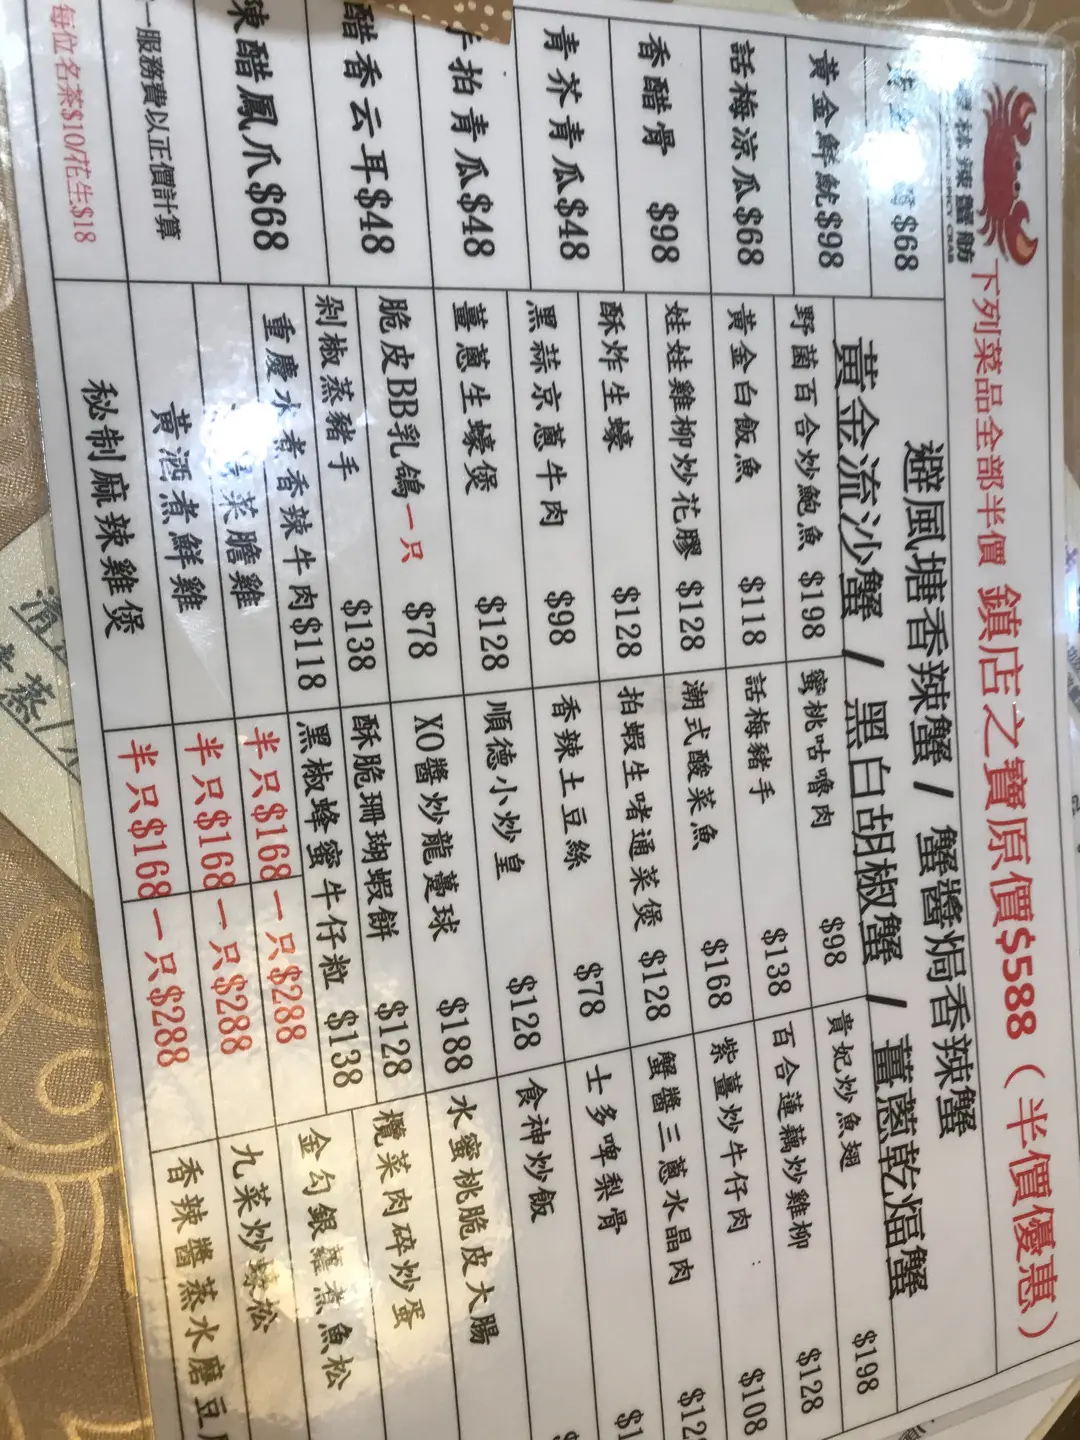 辣蟹舫
SPICY CRAB
下列菜品全部半價 鎮店之寶原價$588（半價優惠）
避風塘香辣蟹 / 蟹醬焗香辣蟹
黃金流沙蟹 / 黑白胡椒蟹 / 薑蔥乾煏蟹
$68
黃金鮮魷$98
話梅涼瓜$68
香醋骨 $98
青芥青瓜$48
手拍青瓜$48
醋香云耳$48
辣醋鳳爪$68
一服務費以正價計算
每位名茶$10/花生$18
野菌百合炒鮑魚 $198
黃金白飯魚 $118
娃娃雞柳炒花膠 $128
酥炸生蠔 $128
黑蒜京蔥牛肉 $98
薑蔥生蠔煲 $128
脆皮BB乳鴿一只 $78
剁椒蒸豬手 $138
重慶水煮香辣牛肉$118
菜膽雞 半只$168 一只$288
黃酒煮鮮雞 半只$168 一只$288
秘制麻辣雞煲 半只$168 一只$288
蜜桃咕嚕肉 $98
話梅豬手 $138
潮式酸菜魚 $168
拍蝦生啫通菜煲 $128
香辣土豆絲 $78
順德小炒皇 $128
XO醬炒龍躉球 $188
酥脆珊瑚蝦餅 $128
黑椒蜂蜜牛仔粒 $138
貴妃炒魚翅 $198
百合蓮藕炒雞柳 $128
紫薑炒牛仔肉 $108
蟹醬三蔥水晶肉
士多啤梨骨
食神炒飯
水蜜桃脆皮大腸
欖菜肉碎炒蛋
金勾銀蘿煮魚松
九菜炒螺松
香辣醬蒸水磨豆